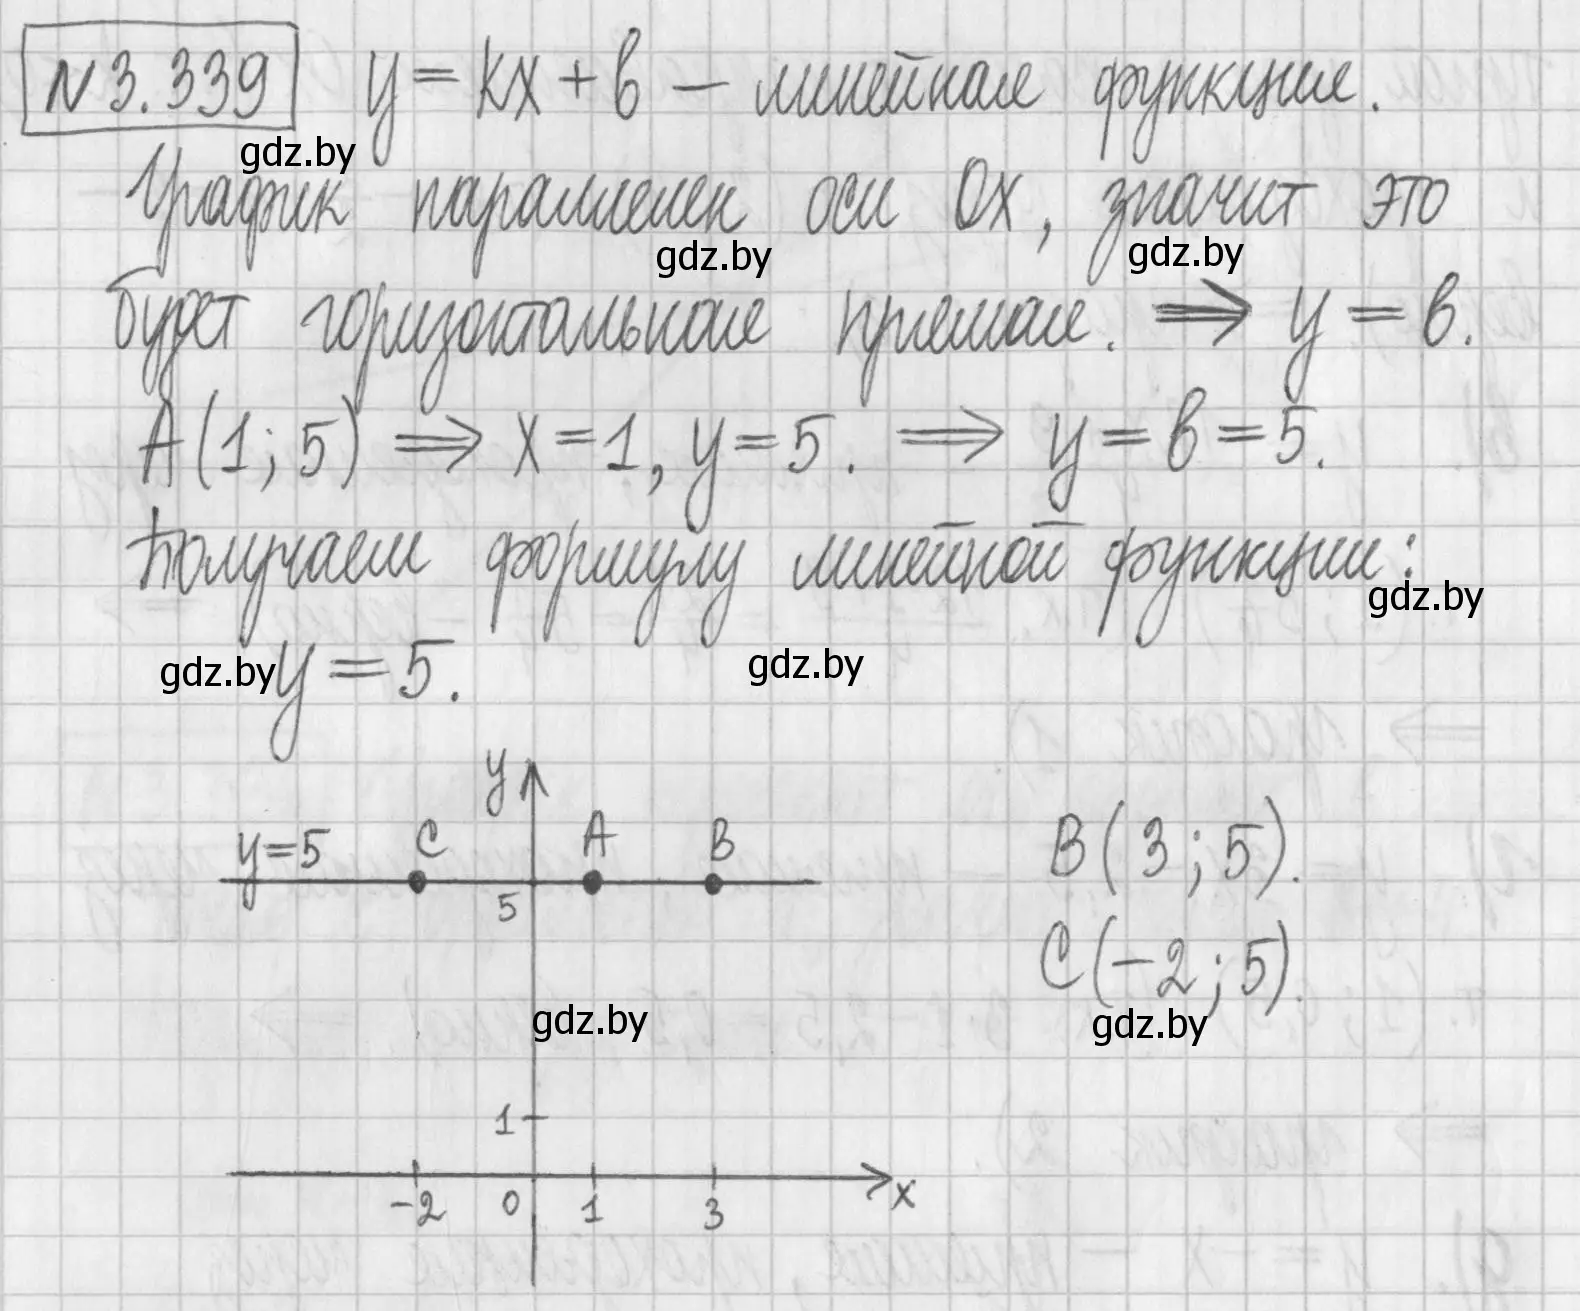 N 3.339 y = kx + b – линейная функция.
gdz.by
График параллелен оси Ox, значит это
gdz.by gdz.by
будет горизонтальная прямая. ⇒ y = b.
A(1; 5) ⇒ x = 1, y = 5. ⇒ y = b = 5.
Получаем формулу линейной функции:
gdz.by
gdz.by y = 5. gdz.by
y
y=5 C A B B(3; 5).
5
C(-2; 5).
gdz.by gdz.by
1
-2 0 1 3 x